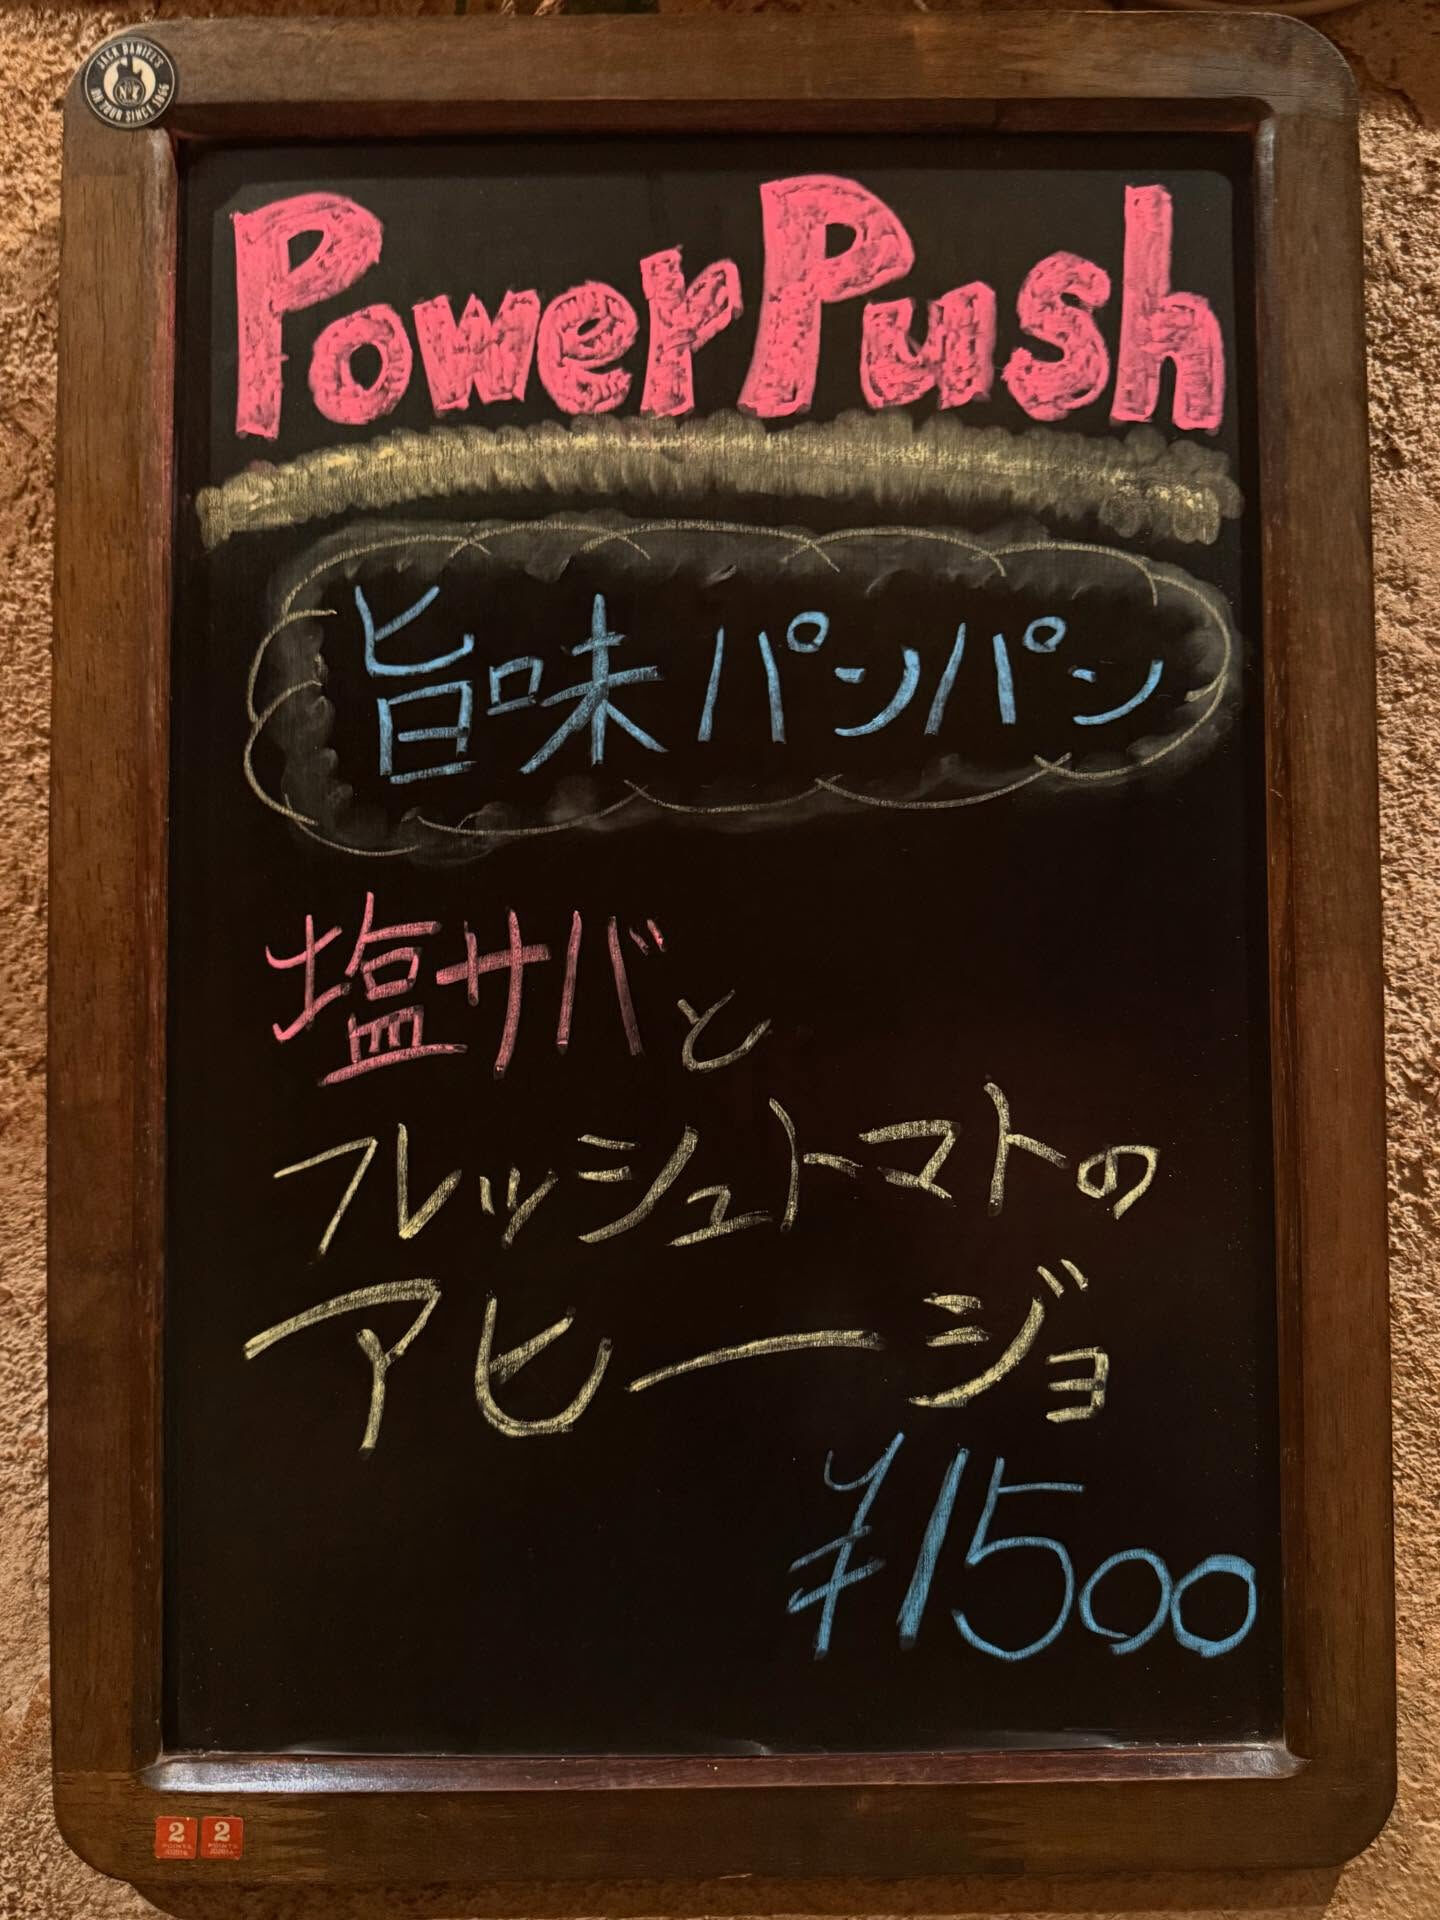 JACK DANIEL'S
No.7
ON TOUR SINCE 1866
PowerPush
旨味パンパン
塩サバと
フレッシュトマトの
アヒージョ
¥1500
2 2
POINTS POINTS